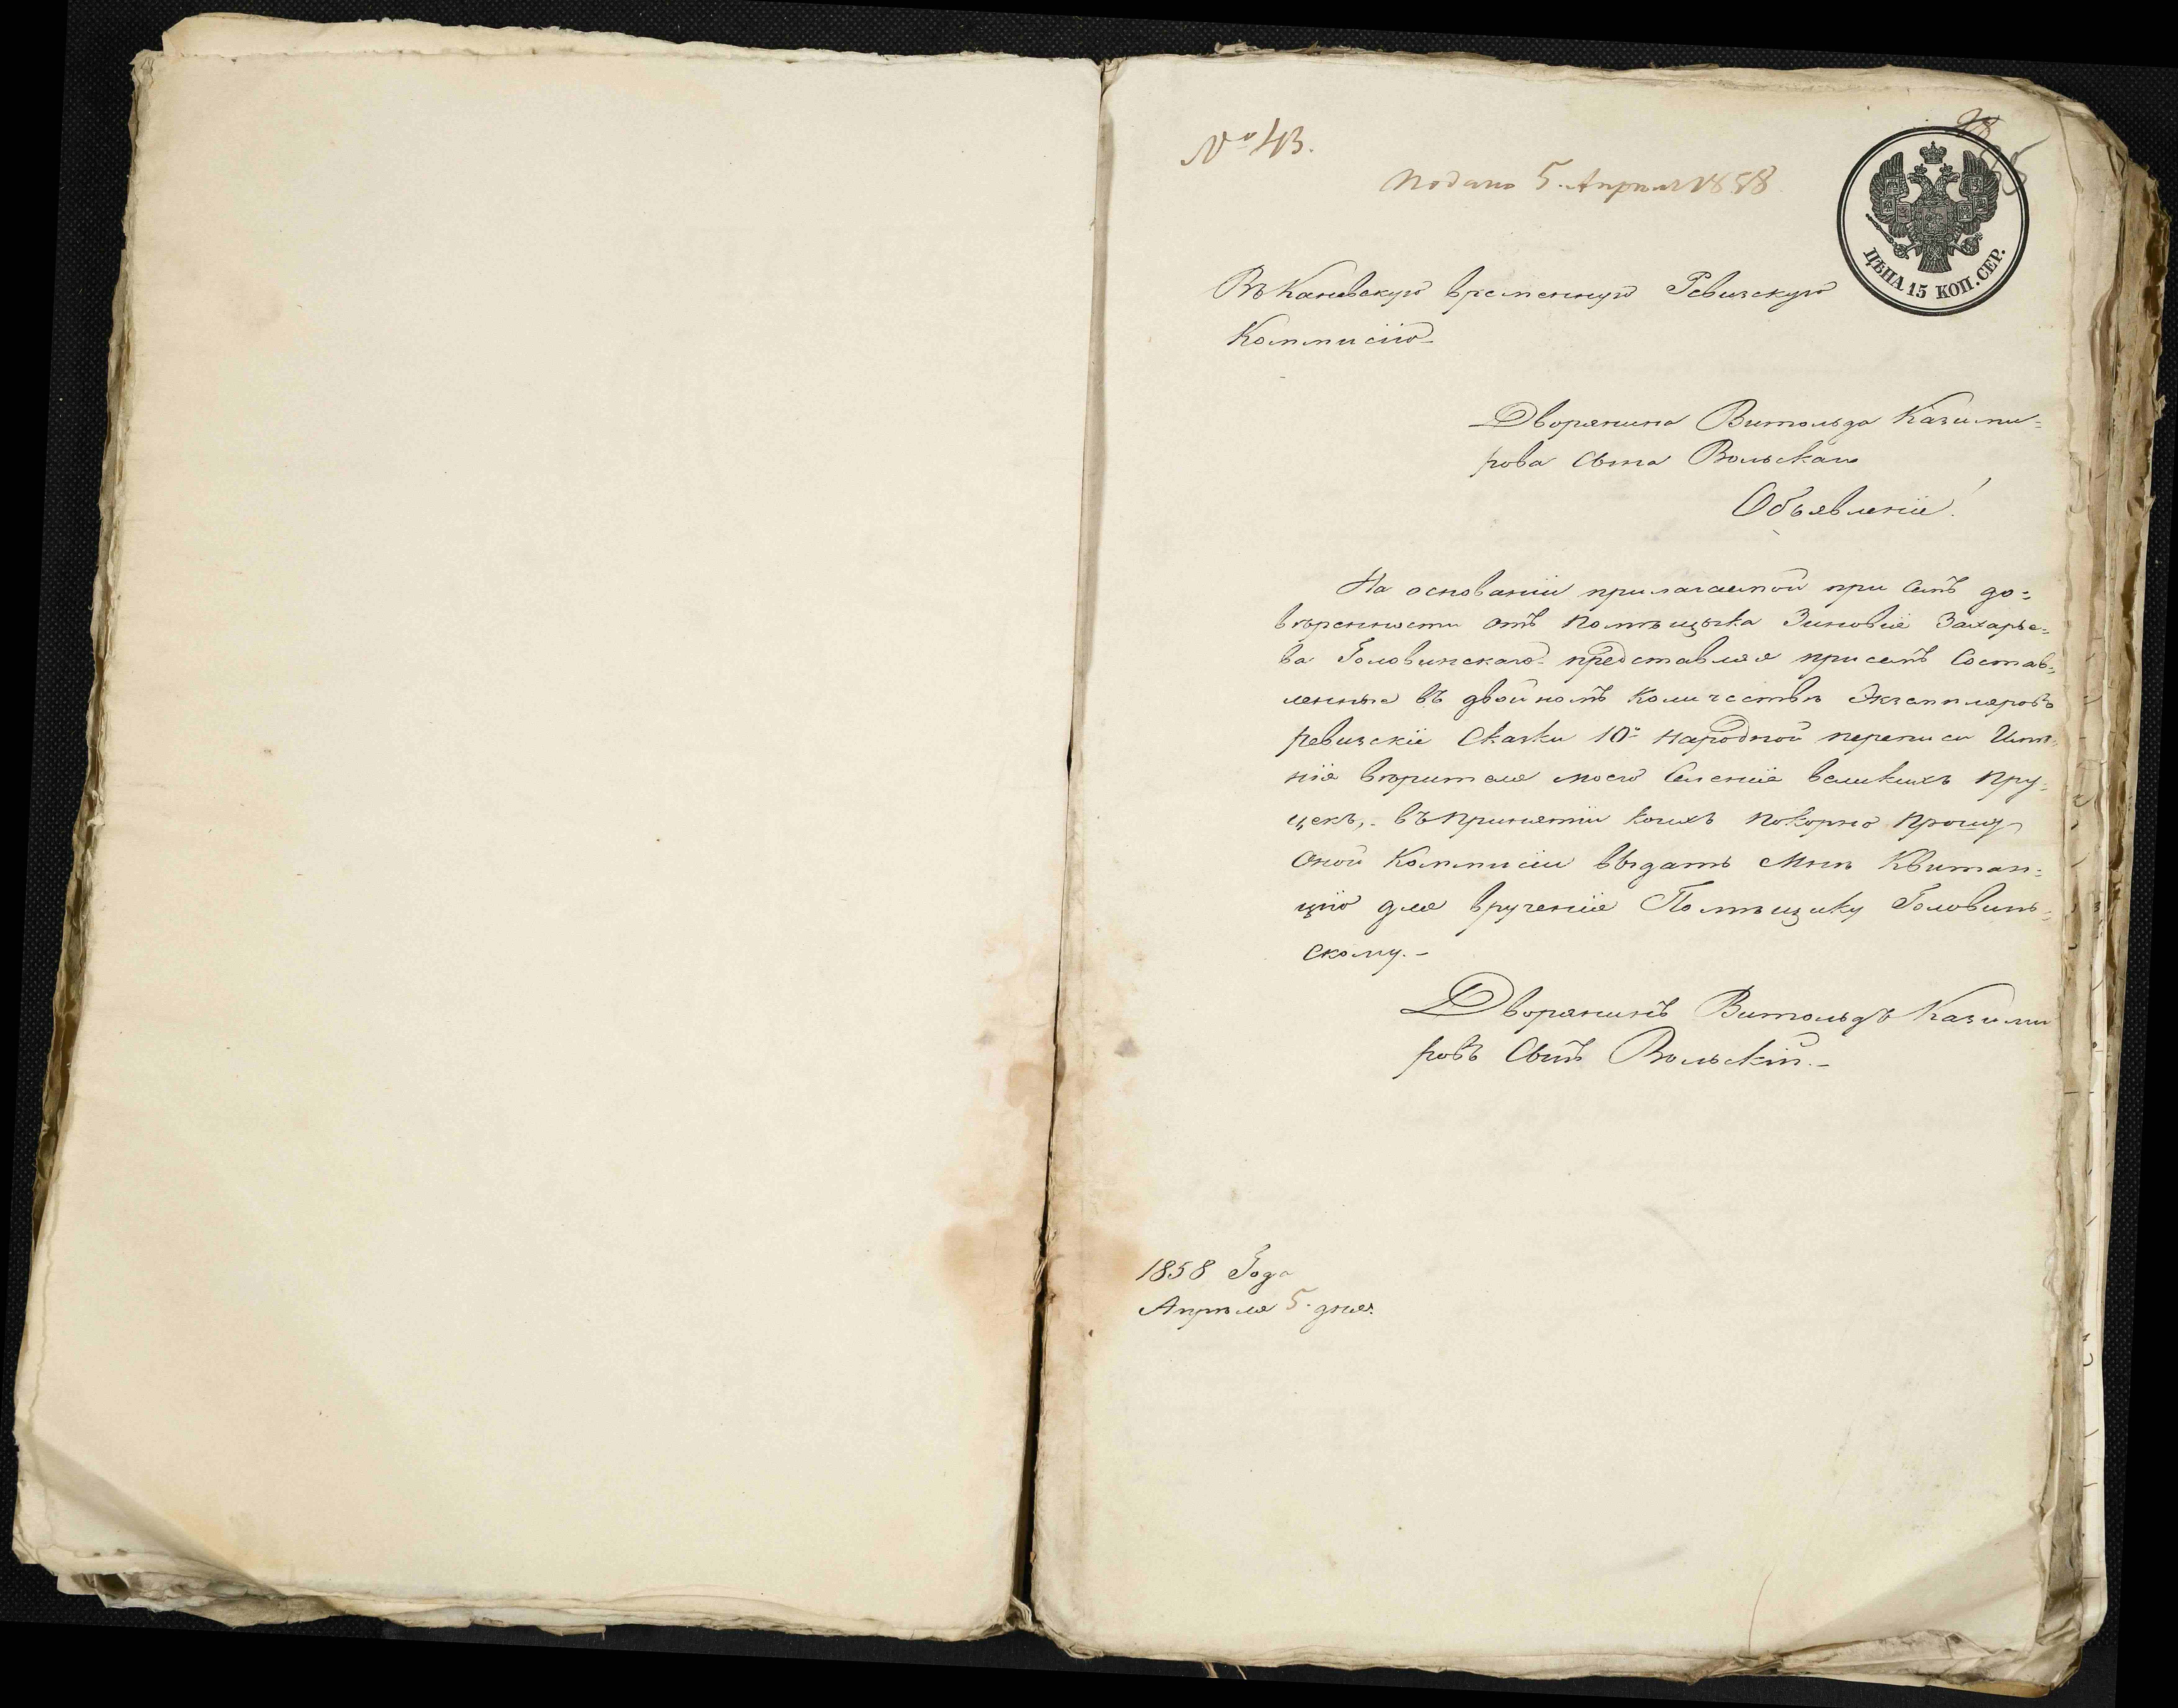 № 43.
Подано 5. Апреля 1858.
ЦѢНА 15 КОП. СЕР.
Въ Каневскую временную Ревизскую
Коммисiю
Дворянина Витольда Казими=
рова Сына Вольскаго
Объявленiе!
На основанiи прилагаемой при семъ до=
вѣренности отъ Помѣщика Зиновiя Захарье=
ва Головинскаго представляя присемъ Состав=
ленные въ двойномъ Количествѣ Экземпляровъ
ревизскiе Сказки 10й Народной переписи Имѣ=
нiя вѣрителя моего Селенiя великихъ Пру=
цекъ, въ принятiи коихъ покорно прошу
Оной Коммисiи выдать Мнѣ Квитан=
цiю для врученiя Помѣщику Головинь=
скому.-
Дворянинъ Витольдъ Казими
ровъ Сынъ Вольскiй.-
1858 Года
Апрѣля 5. дня.